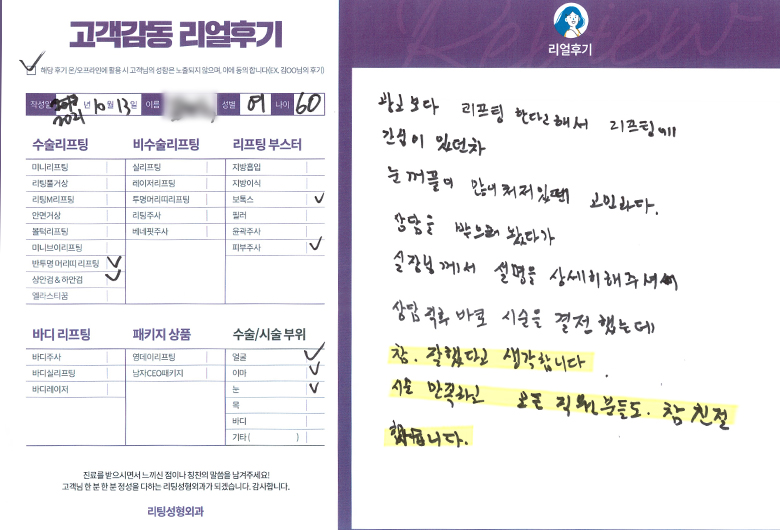 고객감동 리얼후기
해당 후기 온/오프라인에 활용 시 고객님의 성함은 노출되지 않으며, 이에 동의 합니다(EX, 김OO님의 후기)
작성일 2021 년 10 월 13 일 이름 성별 여 나이 60
수술리프팅
미니리프팅
리팅풀거상
리팅M리프팅
안면거상
볼턱리프팅
미니브이리프팅
반투명 머리띠 리프팅
상안검 & 하안검
엘라스티꿈
비수술리프팅
실리프팅
레이저리프팅
투명머리띠리프팅
리팅주사
베네핏주사
리프팅 부스터
지방흡입
지방이식
보톡스
필러
윤곽주사
피부주사
바디 리프팅
바디주사
바디실리프팅
바디레이저
패키지 상품
원데이리프팅
남자CEO패키지
수술/시술 부위
얼굴
이마
눈
목
바디
기타 ( )
진료를 받으시면서 느끼신 점이나 칭찬의 말씀을 남겨주세요!
고객님 한 분 한 분 정성을 다하는 리팅성형외과가 되겠습니다. 감사합니다.
리팅성형외과
Review
리얼후기
광고보다 리프팅 한다고해서 리프팅에
관심이 있던차
눈꺼풀이 많이 처져있땐 고민하다.
상담을 받으러 왔다가
실장님께서 설명을 상세히해주셔서
상담 직후 바로 시술을 결정했는데
참. 잘했다고 생각합니다
시술 만족하고 모든 직원분들도. 참 친절
했습니다.